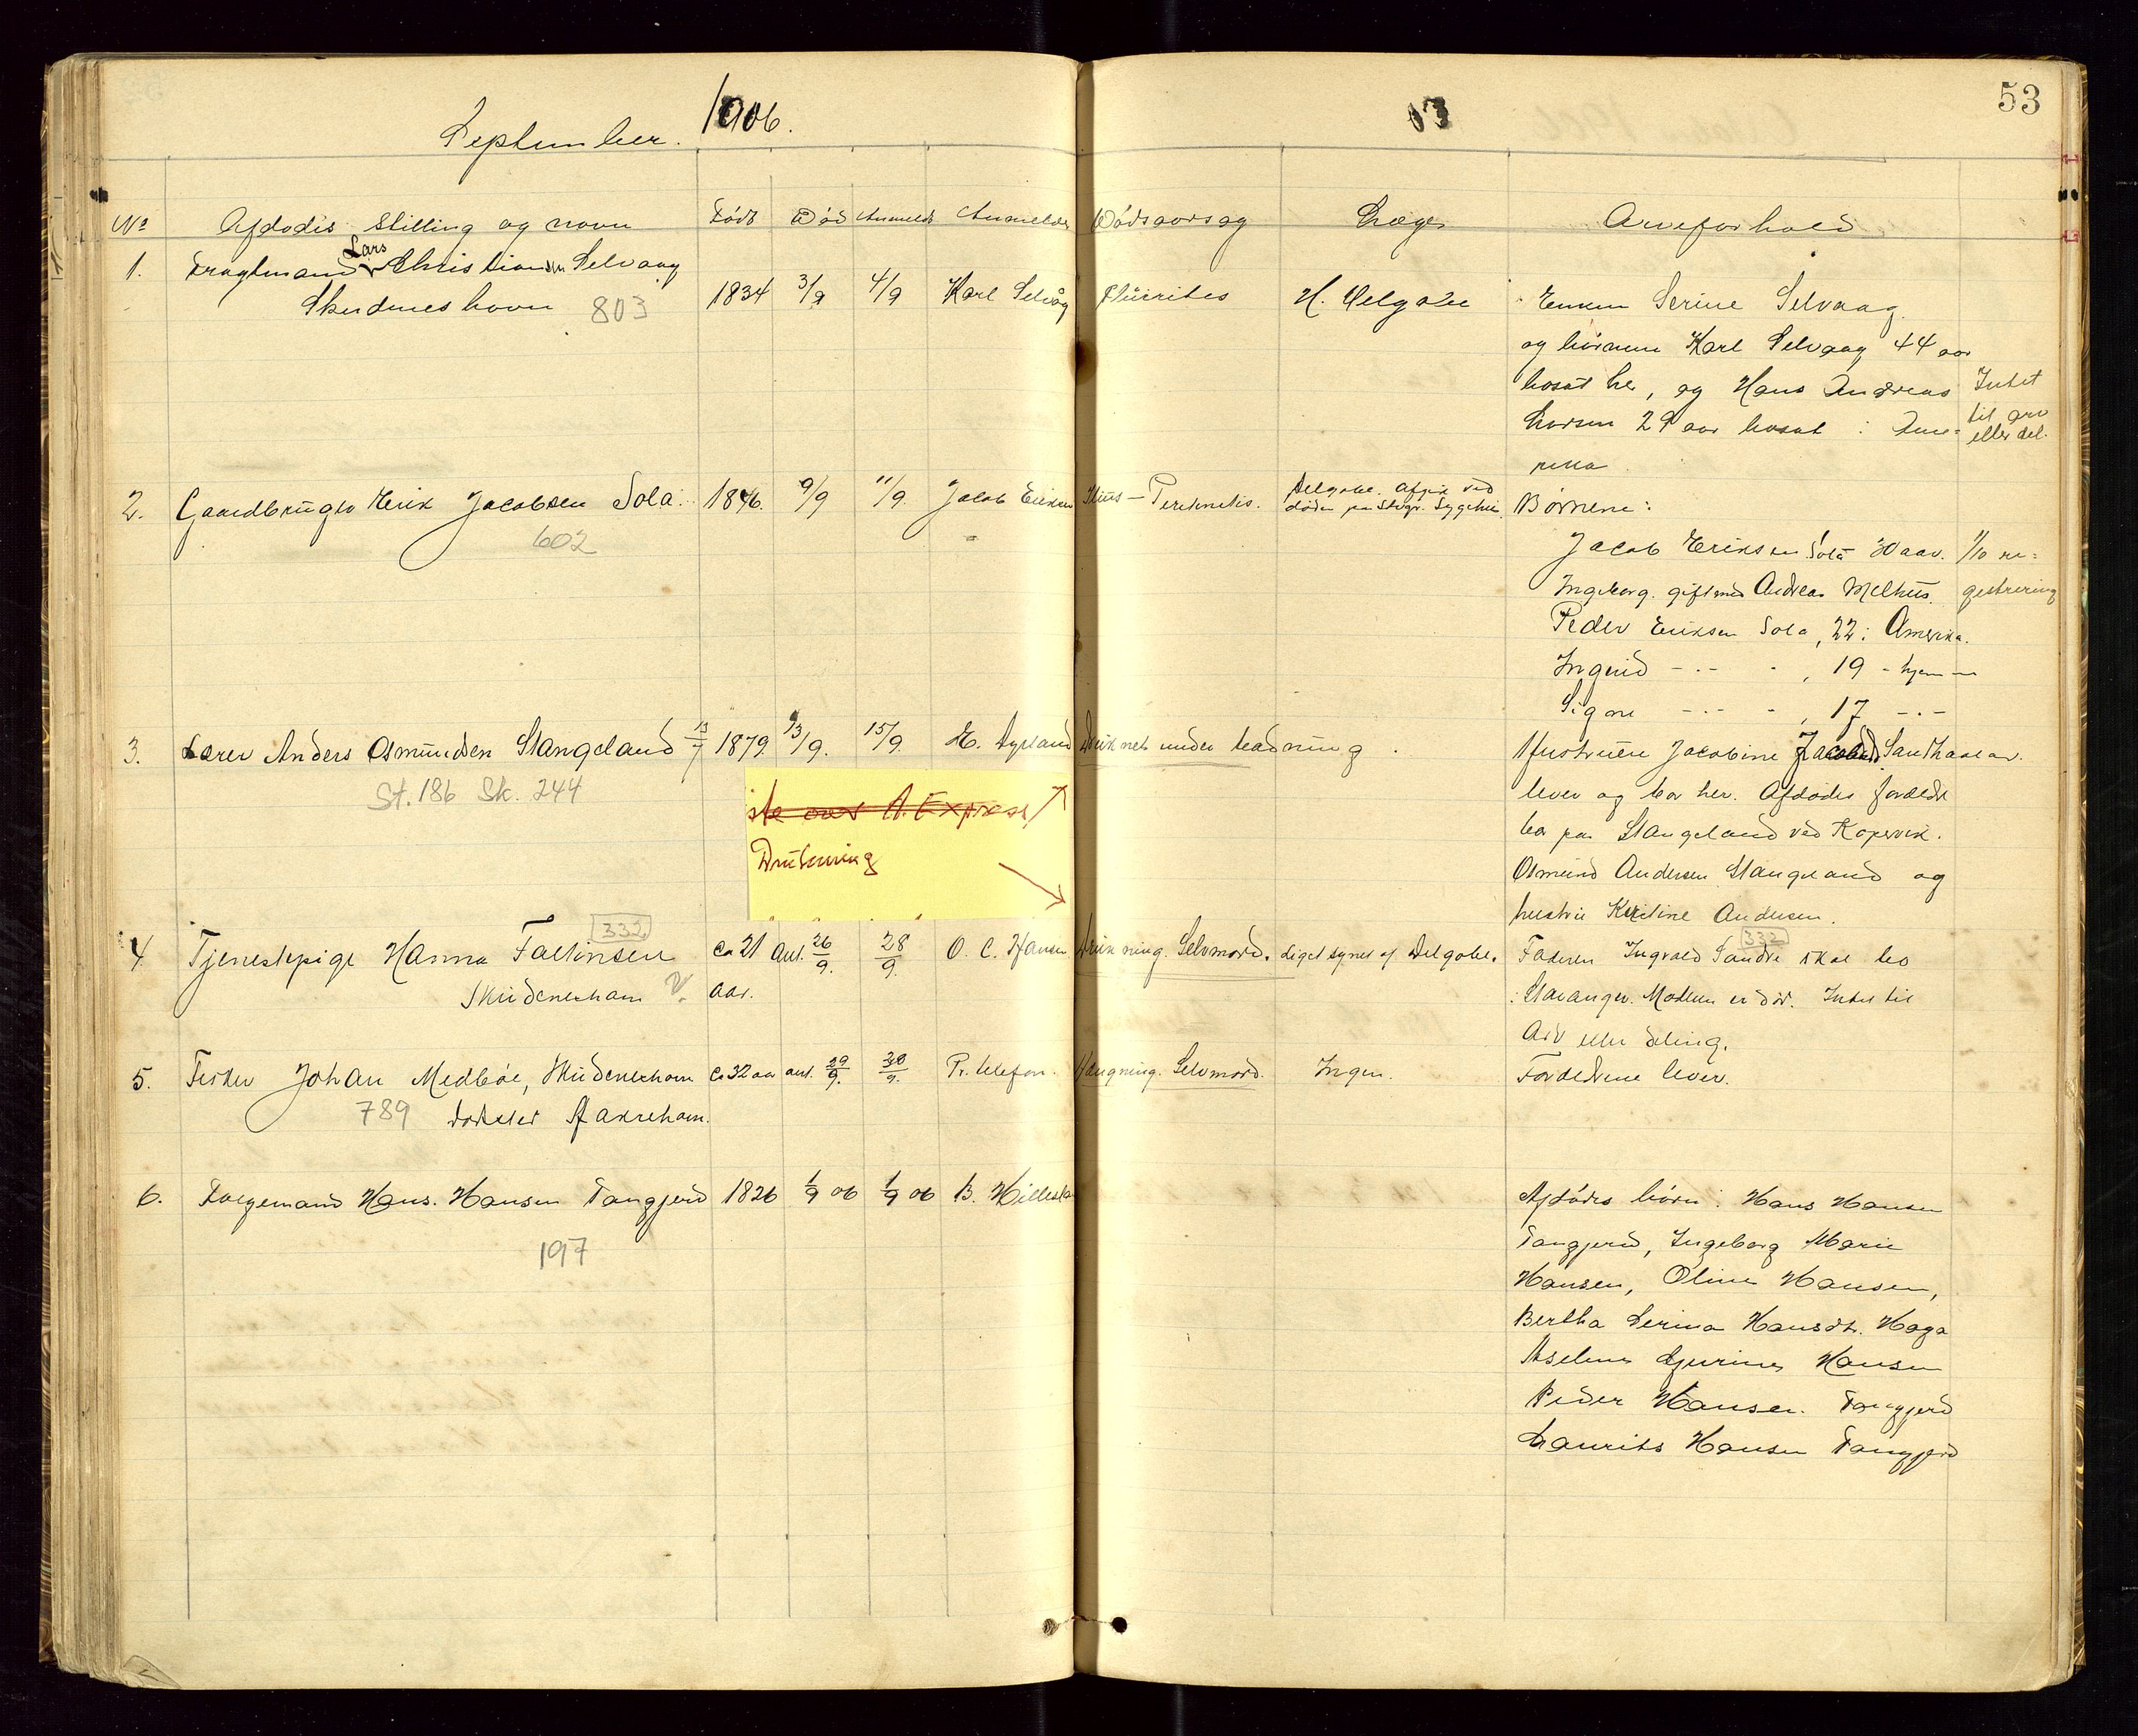 53
September. 1906.
No Afdødes stilling og navn Født Død Anmeldt Anmelder Dødsaarsag Læge Arveforhold
1. Fragtmand Lars Christiansen Selvaag
Skudneshavn 803 1834 3/9 4/9 Karl Selvåg Pluiritis H. Delgobe Enken Serine Selvaag
og børnene Karl Selvaag 44 aar
bosat her, og Hans Andreas Intet
Larsen 29 aar bosat i Ame= til arv
rika eller del.
2. Gaardbruger Erik Jacobsen Sola. 1846. 9/9 11/9. Jacob Eriksen Ilius-Peritonitis. Delgobe. Afgik ved
døden paa Stvgr. Sygehus. Børnene:
602
Jacob Eriksen Sola 30 aar. 1/10 re=
Ingeborg. gift med Andreas Melhus. gistrering
Peder Eriksen Sola, 22 i Amerika.
Ingrid -.- - , 19 - hjemme
Signe -.- - , 17 -.-
3. Lærer Anders Osmundsen Stangeland 13/7 1879. 13/9. 15/9. E. Dyrland Druknet under badning. Husbruen Jacobine Jacobsd. Sandhaaland.
St. 186 Sk. 244
lever og bor her. Afdødes forældre
bor paa Stangeland ved Kopervik.
Osmund Andersen Stangeland og
hustru Kristine Andersen.
ste over A. Express
Drukning
4. Tjenestepige Hanna Faltinsen 332 Ca 21 Ant. 26/9. 28/9. O. C. Hansen Drukning. Selvmord. Liget synet af Delgobe. Faderen Ingvald Sandve skal bo 332
Skudeneshavn V. aar. i Stavanger. Moderen er død. Intet til
Arv eller deling.
5. Fisker Johan Medbøe, Skudeneshavn Ca 32 aar ant. 29/9. 30/9. Pr. telefon. Hængning. Selvmord. Ingen. Forældrene lever.
789 Aakrehavn.
6. Folgemand Hans. Hansen Tangjerd 1826 1/9 06 1/9 06 B. Hillesla Afdødes børn: Hans Hansen
197
Tangjerd, Ingeborg Marie
Hansen, Oline Hansen,
Bertha Serina Hansdtr. Haga
Aseline Gjurine Hansen
Peder Hansen. Tangjerd
Laurits Hansen Tangjerd